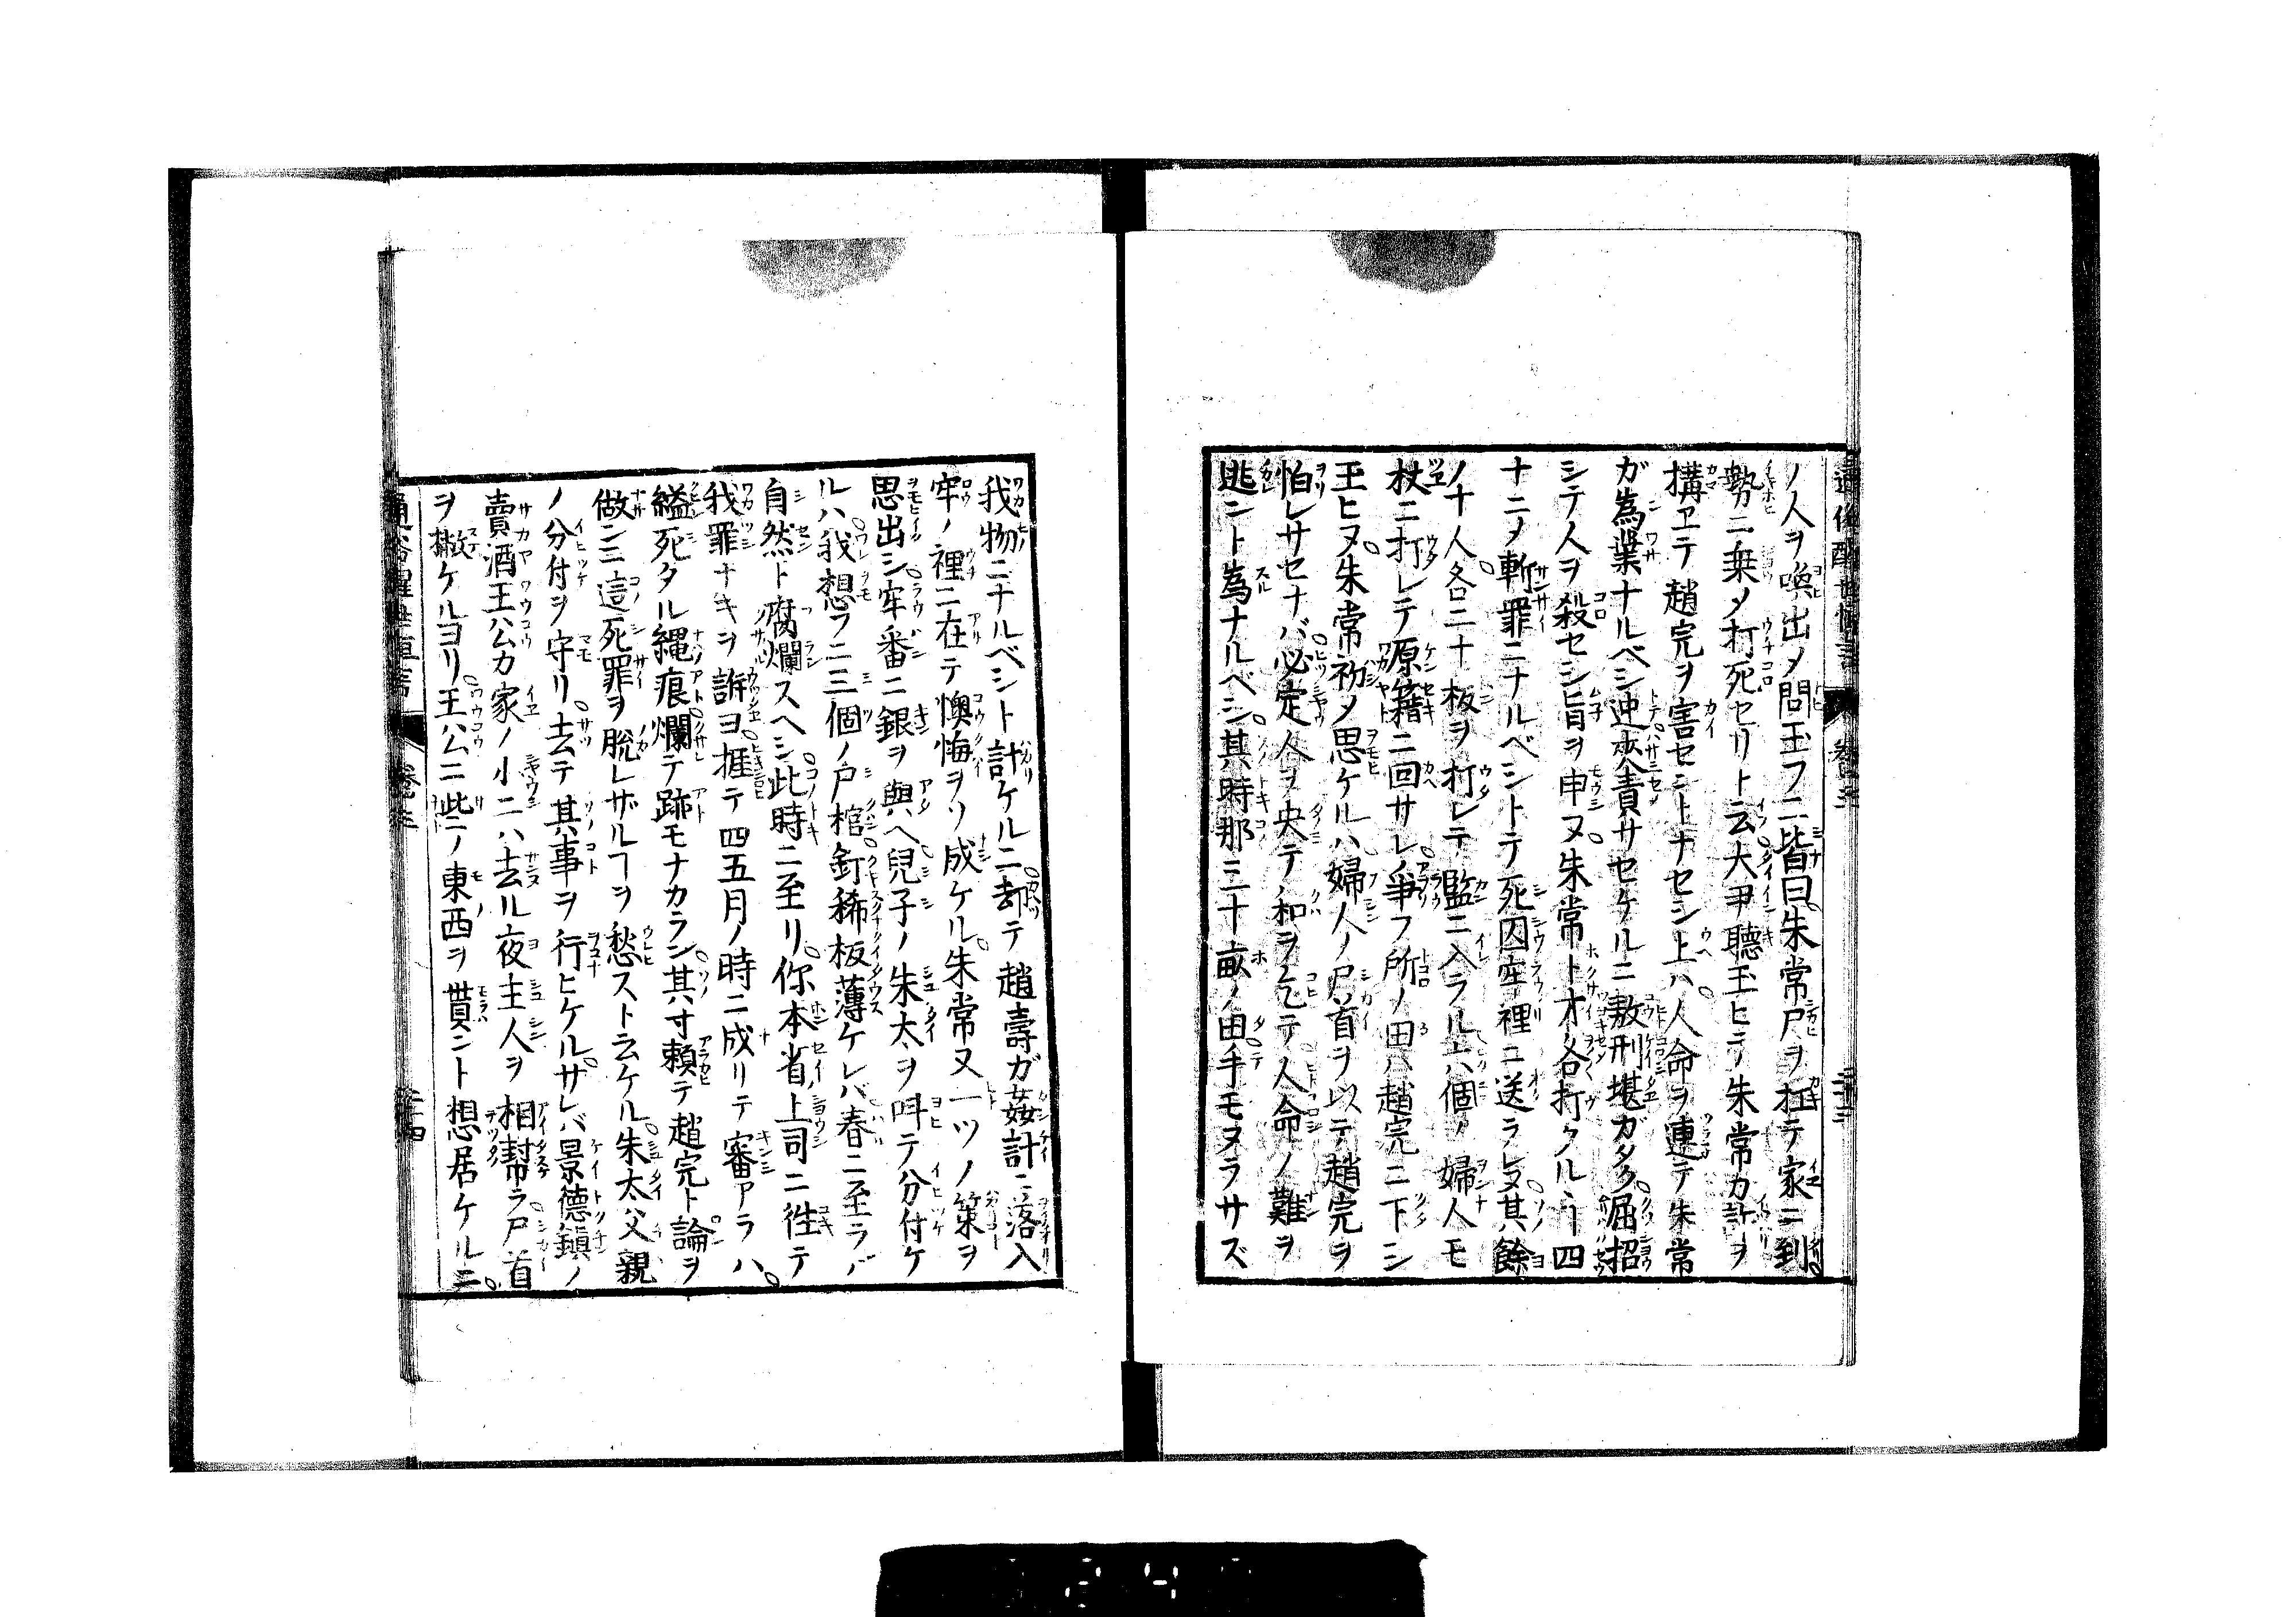 通俗醒世恒言 巻三 三十三
ノ人ヲ喚出メ問玉フニ皆曰朱常尸ヲ扛テ家ニ到
勢ニ乗メ打死セリト云大尹聽玉ヒテ朱常カ計ヲ
構ヱテ趙完ヲ害セントナセシ上ハ人命ヲ連テ朱常
ガ為業ナルベシ迚夾責サセケルニ敖刑堪ガタク屈招
シテ人ヲ殺セシ旨ヲ申ヌ朱常ト才各打クルヿ四
十ニメ斬罪ニナルベシトテ死囚牢裡ニ送ラレ其餘
ノ十人各二十板ヲ打レテ監ニ入ラル六個ノ婦人モ
杖ニ打レテ原籍ニ回サレ爭フ所ノ田ハ趙完ニ下シ
玉ヒヌ朱常初メ思ケルハ婦人ノ尸首ヲ以テ趙完ヲ
怕レサセナバ必定人ヲ央テ和ヲ乞テ人命ノ難ヲ
逃ント為ナルベシ其時那三十畝ノ田手モヌラサズ
我物ニナルベシト計ケルニ却テ趙壽ガ姦計ニ落入
牢ノ裡ニ在テ懊悔ヲソ成ケル朱常又一ツノ策ヲ
思出シ牢番ニ銀ヲ與ヘ兒子ノ朱太ヲ呌テ分付ケ
ルハ我想フニ三個ノ尸棺釘稀板薄ケレバ春ニ至ラバ
自然ト腐爛スヘシ此時ニ至リ你本省上司ニ徃テ
我罪ナキヲ訴ヨ捱テ四五月ノ時ニ成リテ審アラハ
縊死タル繩痕爛テ跡モナカラン其寸頼テ趙完ト論ヲ
做ンニ這死罪ヲ脱レザルヿヲ愁ストラケル朱太父親
ノ分付ヲ守リ去テ其事ヲ行ヒケルサレバ景德鎭ノ
賣酒王公カ家ノ小二ハ去ル夜主人ヲ相幇ラ尸首
ヲ撇ケルヨリ王公ニ些ノ東西ヲ貰ント想居ケルニ
通俗醒世恒言 巻三 三十四